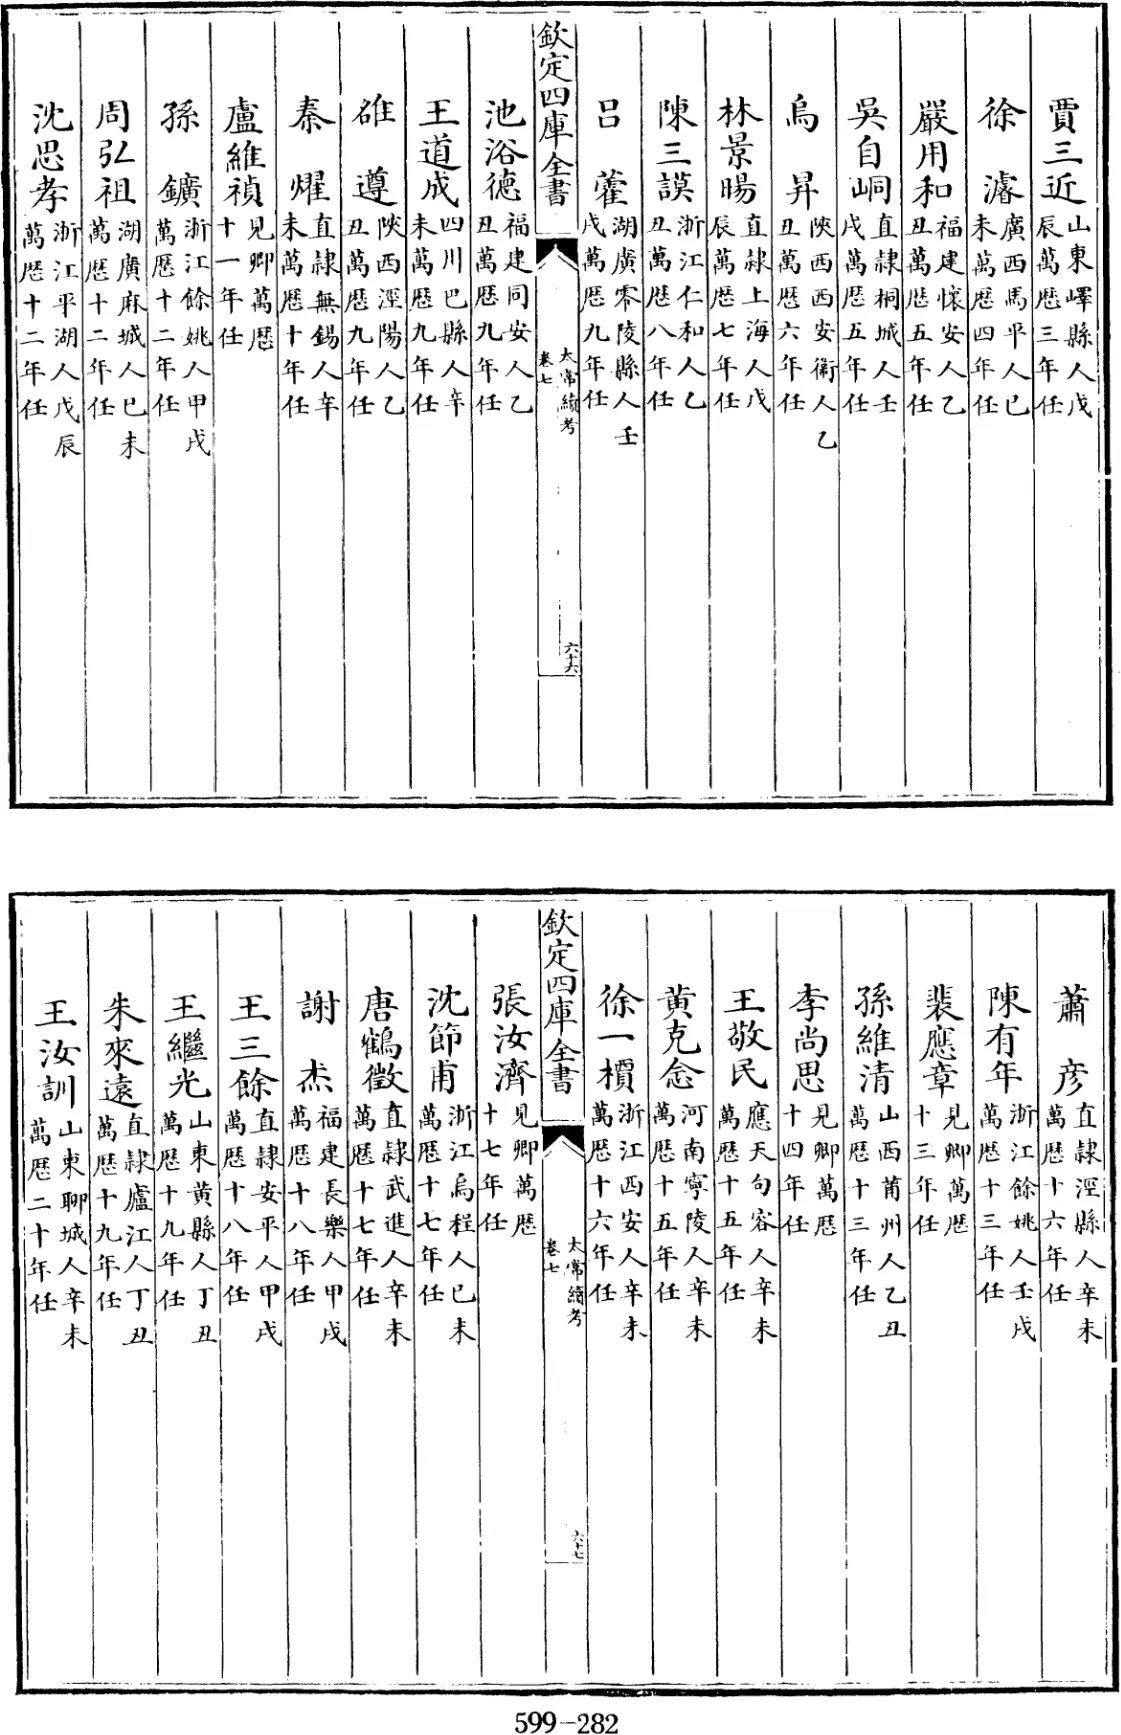 賈三近山東嶧縣人戊辰萬歴三年任
徐濬廣西馬平人已未萬歴四年任
嚴用和福建懷安人乙丑萬歴五年任
吳自峒直隸桐城人壬戌萬歴五年任
烏昇陜西西安衞人乙丑萬歴六年任
林景暘直隸上海人戊辰萬歴七年任
陳三謨浙江仁和人乙丑萬歴八年任
吕藿湖廣零陵縣人壬戌萬歴九年任
欽定四庫全書
太常續考
卷七
六十六
池浴德福建同安人乙丑萬歴九年任
王道成四川巴縣人辛未萬歴九年任
雒遵陜西涇陽人乙丑萬歴九年任
秦燿直隸無錫人辛未萬歴十年任
盧維禎見卿萬歴十一年任
孫鑛浙江餘姚人甲戌萬歴十二年任
周弘祖湖廣麻城人已未萬歴十二年任
沈思孝浙江平湖人戊辰萬歴十二年任
蕭彦直隸涇縣人辛未萬歴十六年任
陳有年浙江餘姚人壬戌萬歴十三年任
裴應章見卿萬歴十三年任
孫維清山西莆州人乙丑萬歴十三年任
李尚思見卿萬歴十四年任
王敬民應天句容人辛未萬歴十五年任
黄克念河南寧陵人辛未萬歴十五年任
徐一檟浙江西安人辛未萬歴十六年任
欽定四庫全書
太常續考
卷七
六十七
張汝濟見卿萬歴十七年任
沈節甫浙江烏程人已未萬歴十七年任
唐鶴徵直隸武進人辛未萬歴十七年任
謝杰福建長樂人甲戌萬歴十八年任
王三餘直隸安平人甲戌萬歴十八年任
王繼光山東黄縣人丁丑萬歴十九年任
朱來遠直隸廬江人丁丑萬歴十九年任
王汝訓山東聊城人辛未萬歴二十年任
599-282